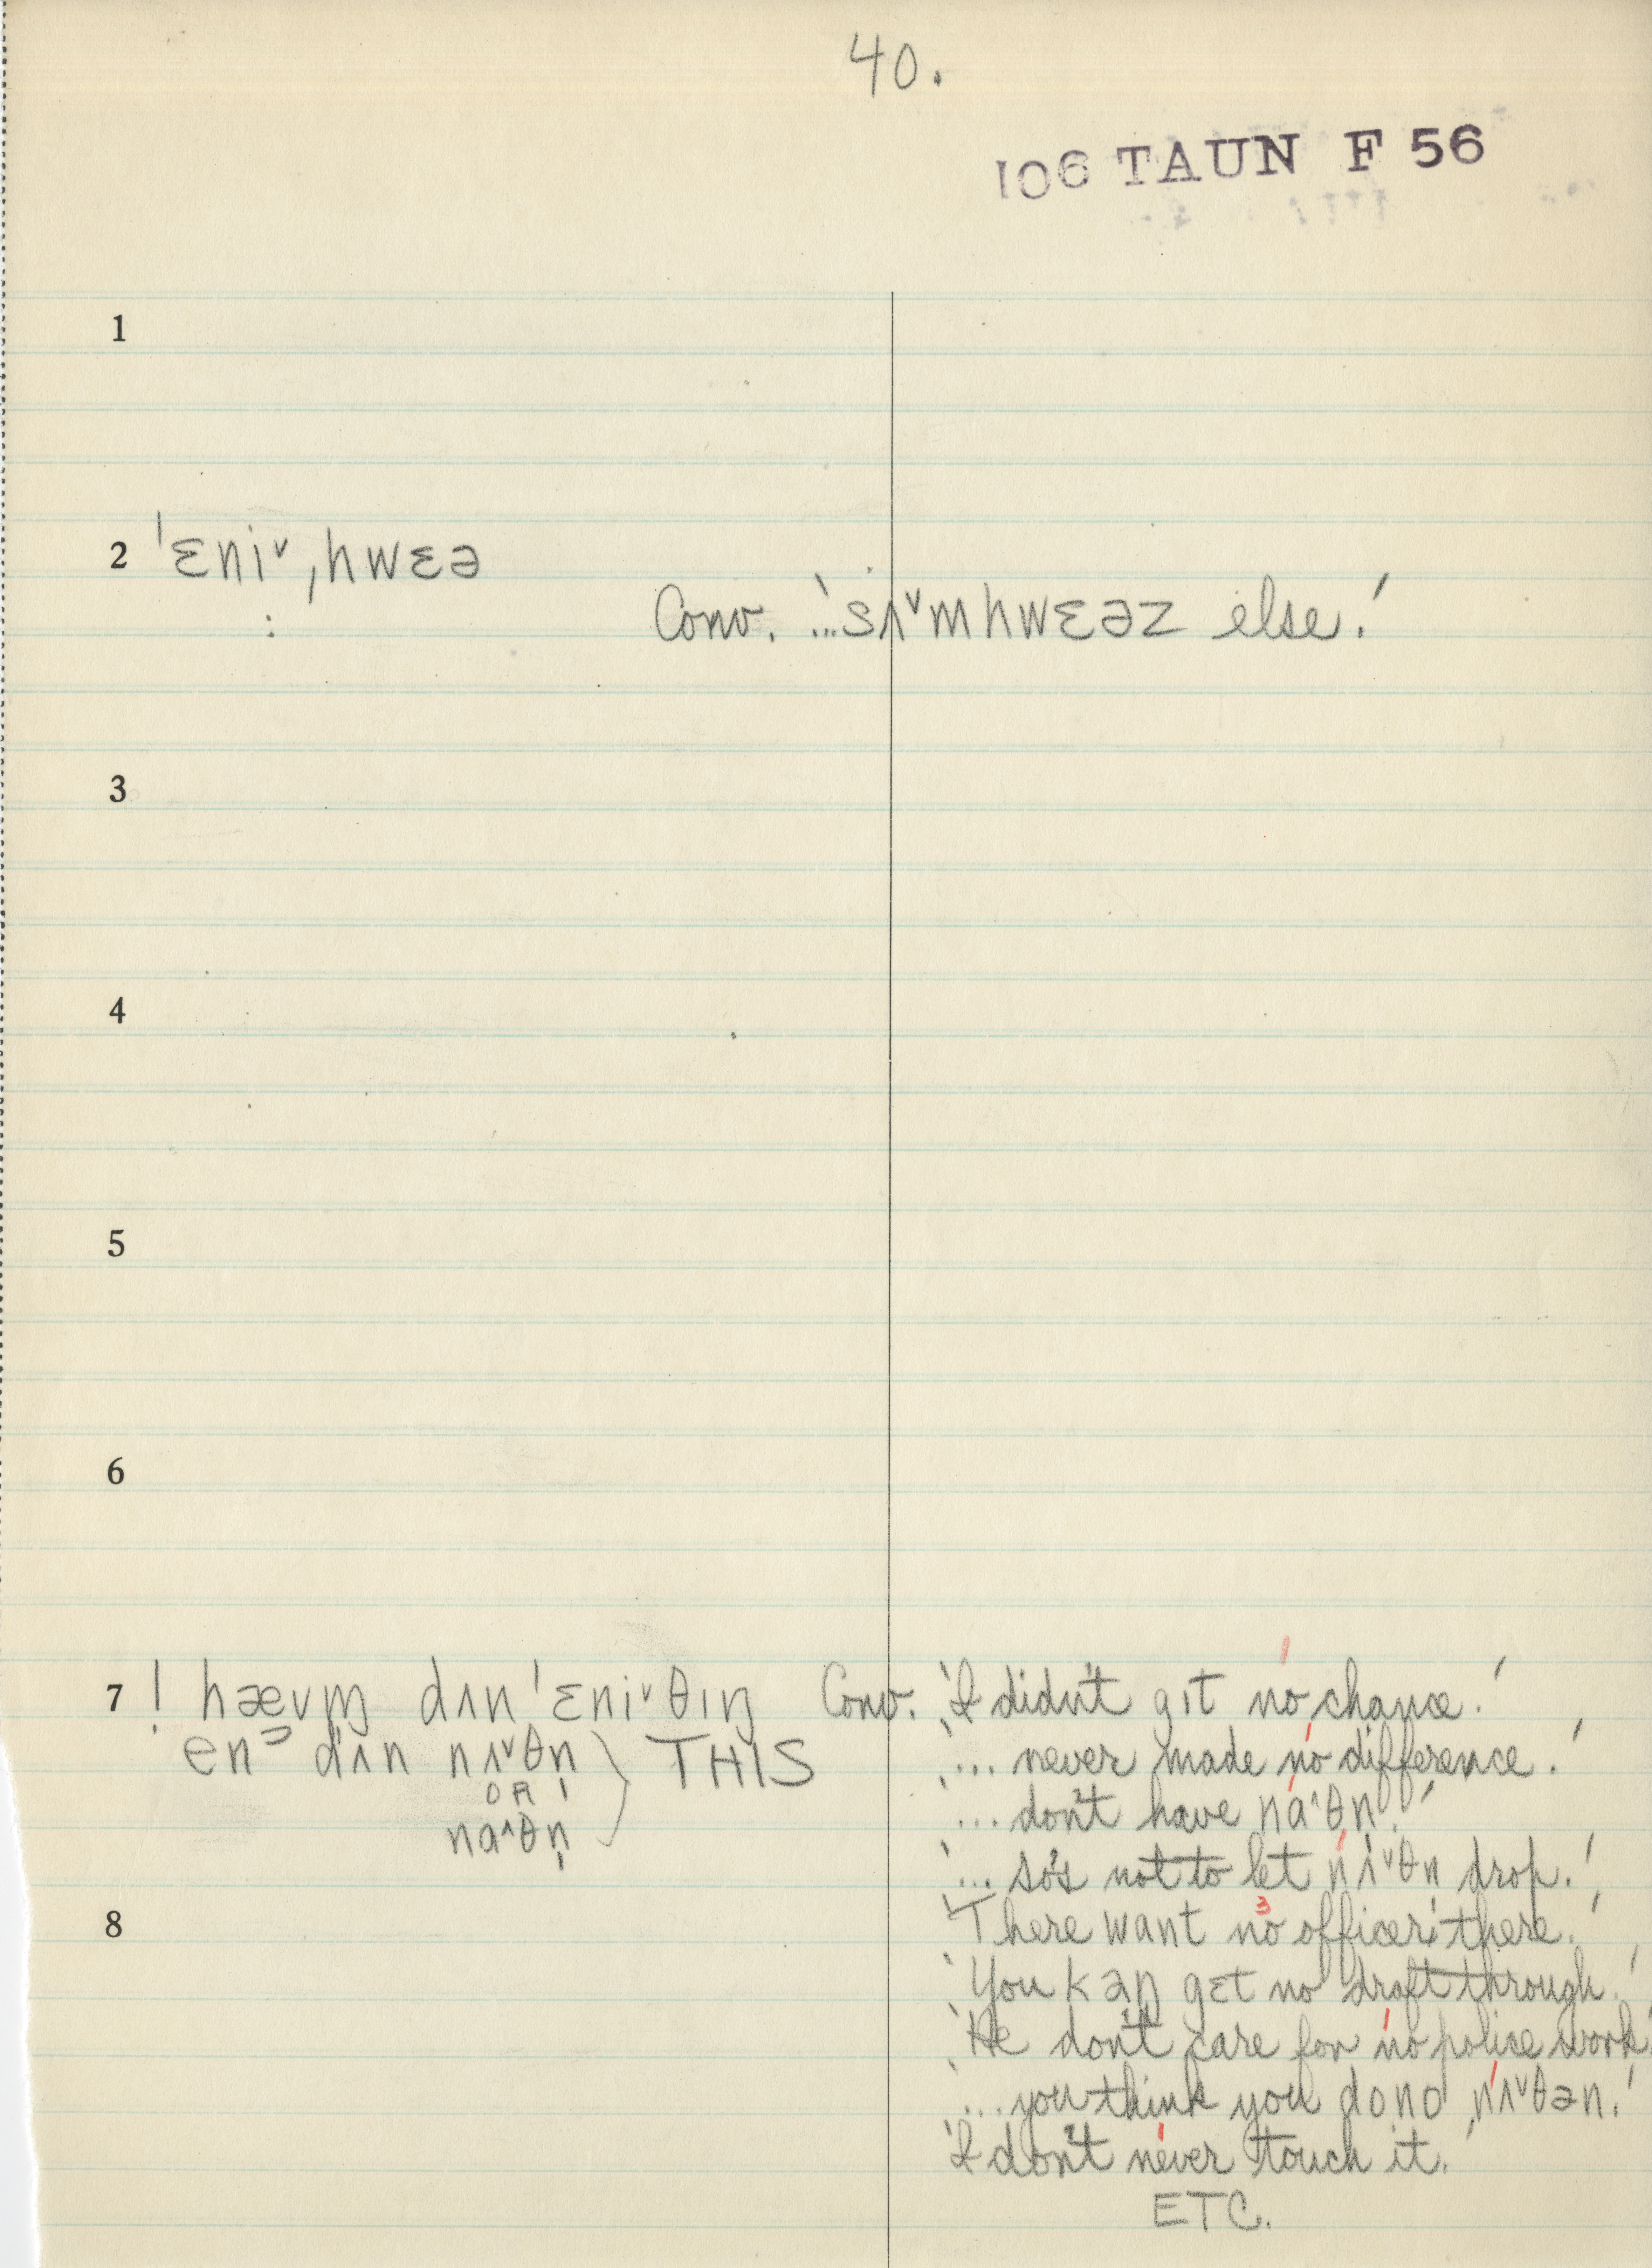 40.
106 TAUN F 56
1
2 ˈɛniˇˌhwɛə
: Conv. '...sʌˇmhwɛəz else.'
3
4
5
6
7 ! hævm̩ dʌn ˈɛniˇθɪŋ Conv. 'I didn't gɪt no chance.'
en dʌn nʌˇθn̩ } THIS '... never made no difference.'
OR
naˆθn̩ '... don't have naˆθn̩.'
'... so's not to let nʌˇθn̩ drop.'
8 'There want no officer there.'
'You kan gɛt no draft through.'
'He don't care for no police work.'
'... you think you dono nʌˇθən.'
'I don't never touch it.'
ETC.